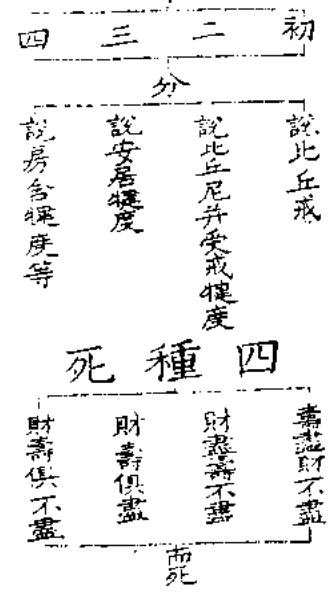 初 二 三 四
分
說比丘戒
說比丘尼并受戒犍度
說安居犍度
說房舍犍度等
四種死
壽盡財不盡
財盡壽不盡
財壽俱盡
財壽俱不盡
而死